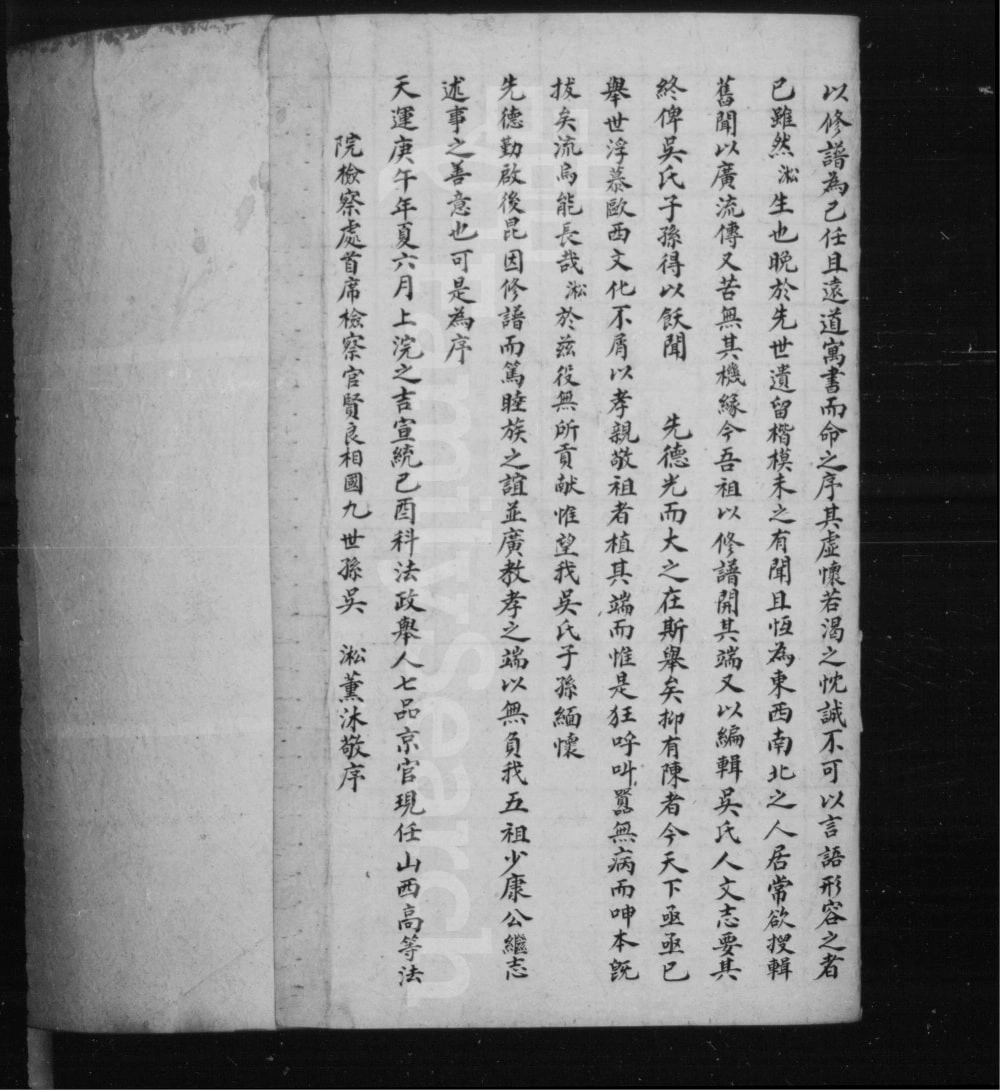 以修譜為己任且遠道寓書而命之序其虛懷若渴之忱誠不可以言語形容之者
已雖然淞生也晚於先世遺留楷模未之有聞且恆為東西南北之人居常欲搜輯
舊聞以廣流傳又苦無其機緣今吾祖以修譜開其端又以編輯吳氏人文志要其
終俾吳氏子孫得以飫聞 先德光而大之在斯舉矣抑有陳者今天下亟亟已
舉世浮慕歐西文化不屑以孝親敬祖者植其端而惟是狂呼叫囂無病而呻本既
拔矣流烏能長哉淞於茲役無所貢献惟望我吳氏子孫緬懷
先德勤啟後昆因修譜而篤睦族之誼並廣教孝之端以無負我五祖少康公繼志
述事之善意也可是為序
天運庚午年夏六月上浣之吉宣統己酉科法政舉人七品京官現任山西高等法
院檢察處首席檢察官賢良相國九世孫吳 淞薰沐敬序
FamilySearch